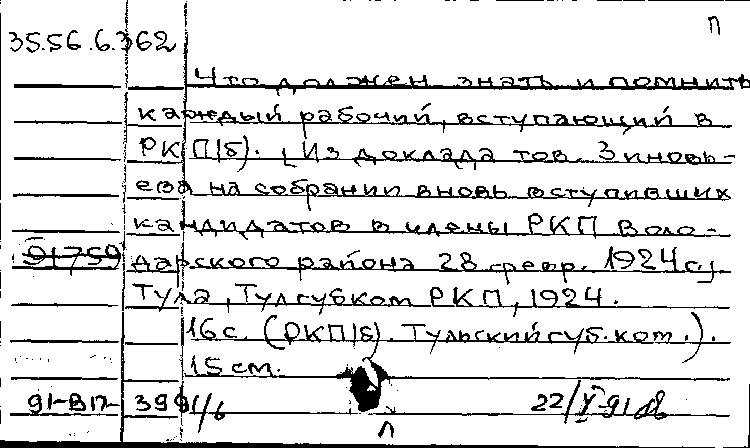 П
35.56.6.362
Что должен знать и помнить
каждый рабочий, вступающий в
РКП(б). [Из доклада тов. Зиновь-
ева на собрании вновь вступивших
кандидатов в члены РКП Воло-
91759
дарского района 28 февр. 1924 г.]
Тула, Тулгубком РКП, 1924.
16 с. (РКП(б). Тульский губ. ком.).
15 см.
91-ВП- 3991/6 22/V-91
Л